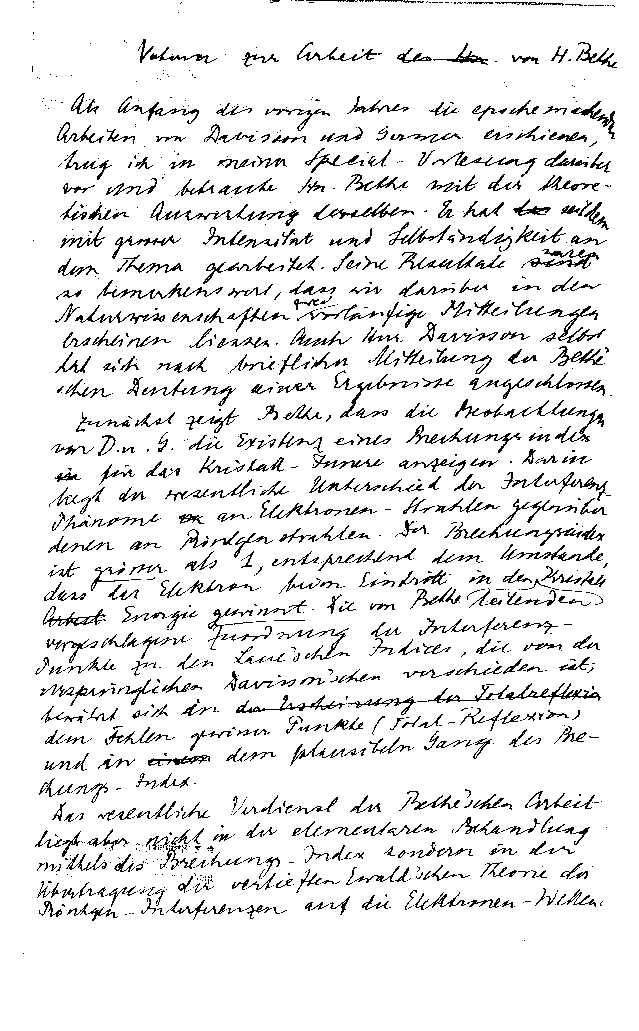 Votum zur Arbeit des Hn. von H. Bethe
Als Anfang des vorigen Jahres die epochemachenden
Arbeiten von Davisson und Germer erschienen,
trug ich in meiner Special-Vorlesung darüber
vor und betraute Hrn. Bethe mit der theore-
tischen Auswertung derselben. Er hat seitdem
mit grosser Intensität und Selbständigkeit an
dem Thema gearbeitet. Seine Resultate sind waren
so bemerkenswert, dass wir darüber in den
Naturwissenschaften zwei vorläufige Mitteilungen
erscheinen liessen. Auch Herr Davisson selbst
hat sich nach brieflicher Mitteilung der Bethe'
schen Deutung seiner Ergebnisse angeschlossen.
Zunächst zeigt Bethe, dass die Beobachtungen
von D. u. G. die Existenz eines Brechungsindex
für das Kristall-Innere anzeigen. Darin
liegt der wesentliche Unterschied der Interferenz-
Phänome an Elektronen-Strahlen gegenüber
denen an Röntgenstrahlen. Der Brechungsindex
ist grösser als 1, entsprechend dem Umstande,
dass das Elektron beim Eintritt in den Kristall
Arbeit Energie gewinnt. Die von Bethe
vorgeschlagene Zuordnung der Interferenz-
Punkte zu den Laue'schen Indices, die von der
ursprünglichen Davissonschen verschieden ist,
bewährt sich in der Erscheinung der Totalreflexion
dem Fehlen gewisser Punkte (Total-Reflexion)
und in einem dem plausibeln Gang des Bre-
chungs-Index.
Das wesentliche Verdienst der Bethe'schen Arbeit
liegt aber nicht in der elementaren Behandlung
mittels des Brechungs-Index sondern in der
Übertragung der vertieften Ewald'schen Theorie der
Röntgen-Interferenzen auf die Elektronen-Wellen.